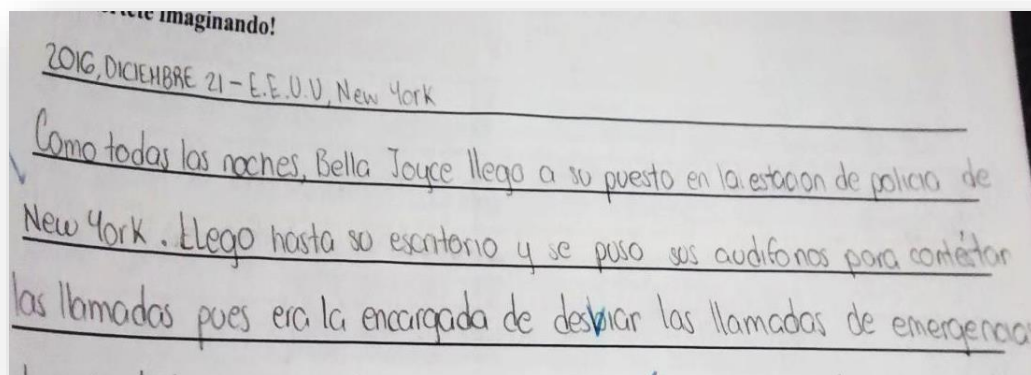 imaginando!
2016, DICIEMBRE 21 - E.E.U.U, New York
Como todas las noches, Bella Joyce llego a su puesto en la estacion de policia de
New York. Llego hasta su escritorio y se puso sus audifonos para contestar
las llamadas pues era la encargada de desviar las llamadas de emergencia